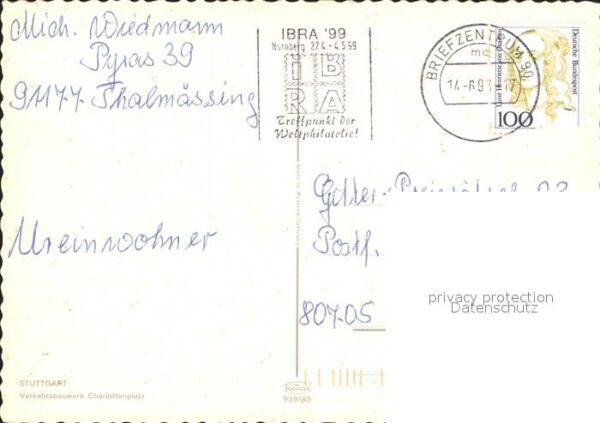 Mich. Wiedmann
Pyras 39
91177 Thalmässing
IBRA '99
Nürnberg 27.4.-4.5.99
IB
RA
Treffpunkt der
Weltphilatelie!
BRIEFZENTRUM 90
mc
Deutsche Bundespost
100
Ureinwohner
Postf.
807-05
privacy protection
Datenschutz
STUTTGART
Verkehrsbauwerk Charlottenplatz